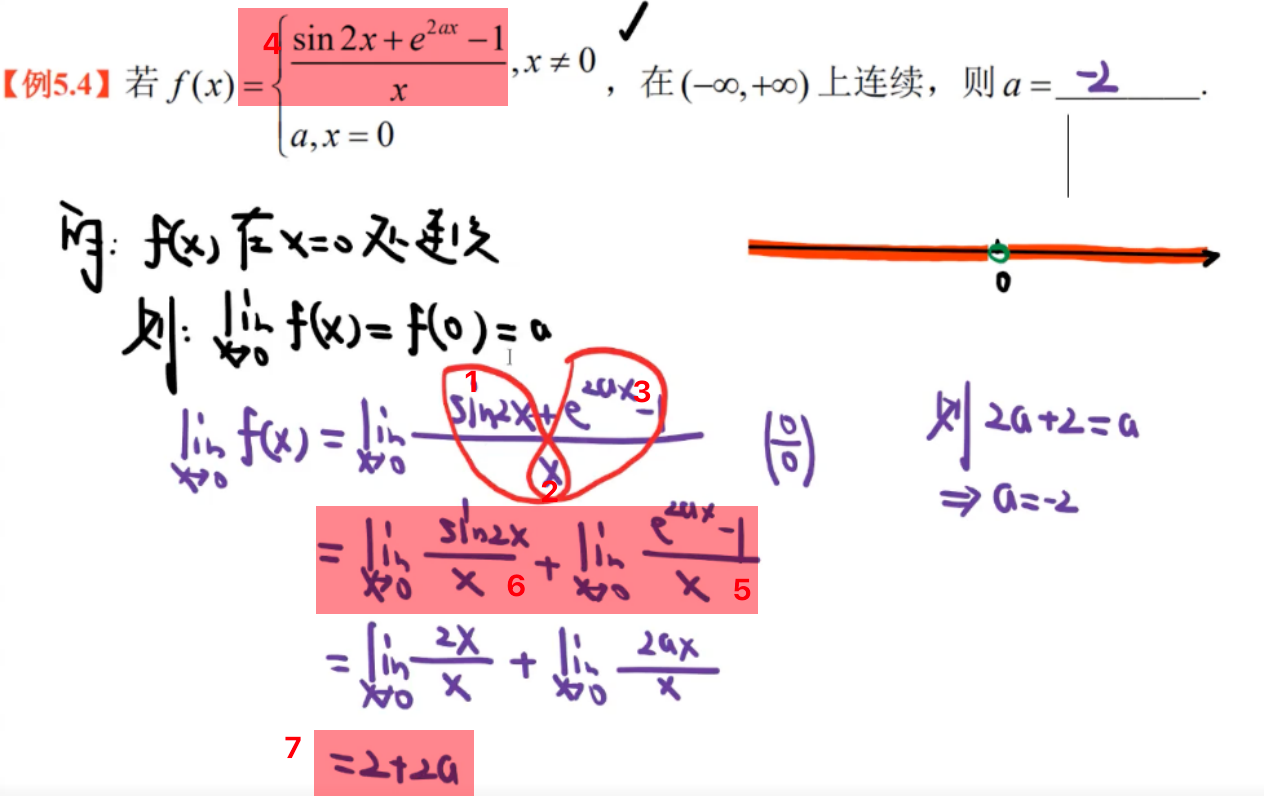 ✓
【例5.4】若 f(x)= { (sin 2x + e^{2ax} − 1)/x , x ≠ 0 ，在 (−∞,+∞) 上连续，则 a = -2 .
a, x = 0
4
0
f(x) 在 x=0 处连续
则: lim_{x→0} f(x) = f(0) = a
lim_{x→0} f(x) = lim_{x→0} (sin2x + e^{2ax} - 1)/x (0/0)
1 3
2
= lim_{x→0} sin2x/x + lim_{x→0} (e^{2ax} - 1)/x
6 5
= lim_{x→0} 2x/x + lim_{x→0} 2ax/x
7
= 2+2a
则 2a+2=a
⇒ a=-2